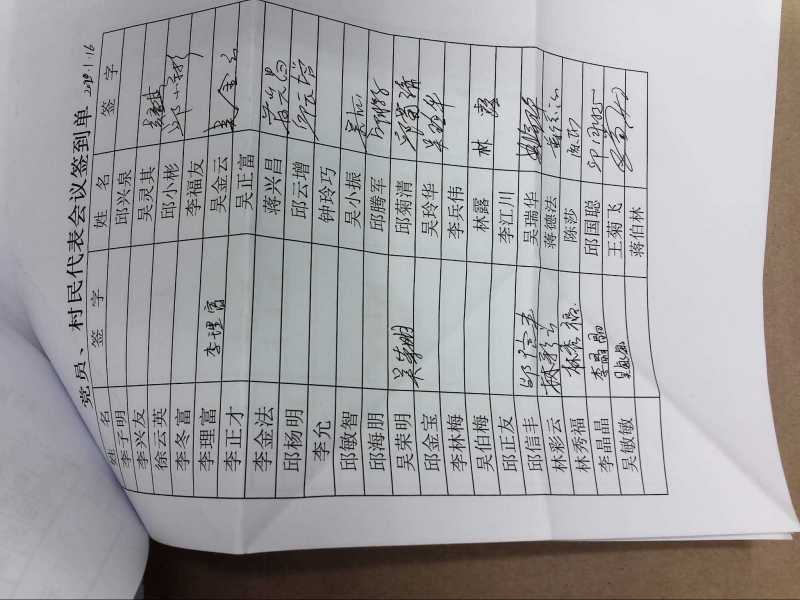 党员、村民代表会议签到单 2019.1.16
姓名 签字 姓名 签字
李子明 邱兴泉
李兴友 吴灵其
徐云英 邱小彬 邱小彬
李冬富 李福友
李理富 李理富 吴金云 吴金云
李正才 吴正富
李金法 蒋兴昌 蒋兴昌
邱杨明 邱云增 邱云增
李允 钟玲巧
邱敏智 吴小振
邱海朋 邱腾军
吴荣明 吴荣明 邱菊清 邱菊清
邱金宝 吴玲华 吴玲华
李林梅 李兵伟
吴伯梅 林露 林露
邱正友 李江川
邱信丰 邱信丰 吴瑞华 吴瑞华
林彩云 林彩云 蒋德法
林秀福 林秀福 陈莎
李晶晶 李晶晶 邱国聪
吴敏敏 王菊飞
蒋伯林